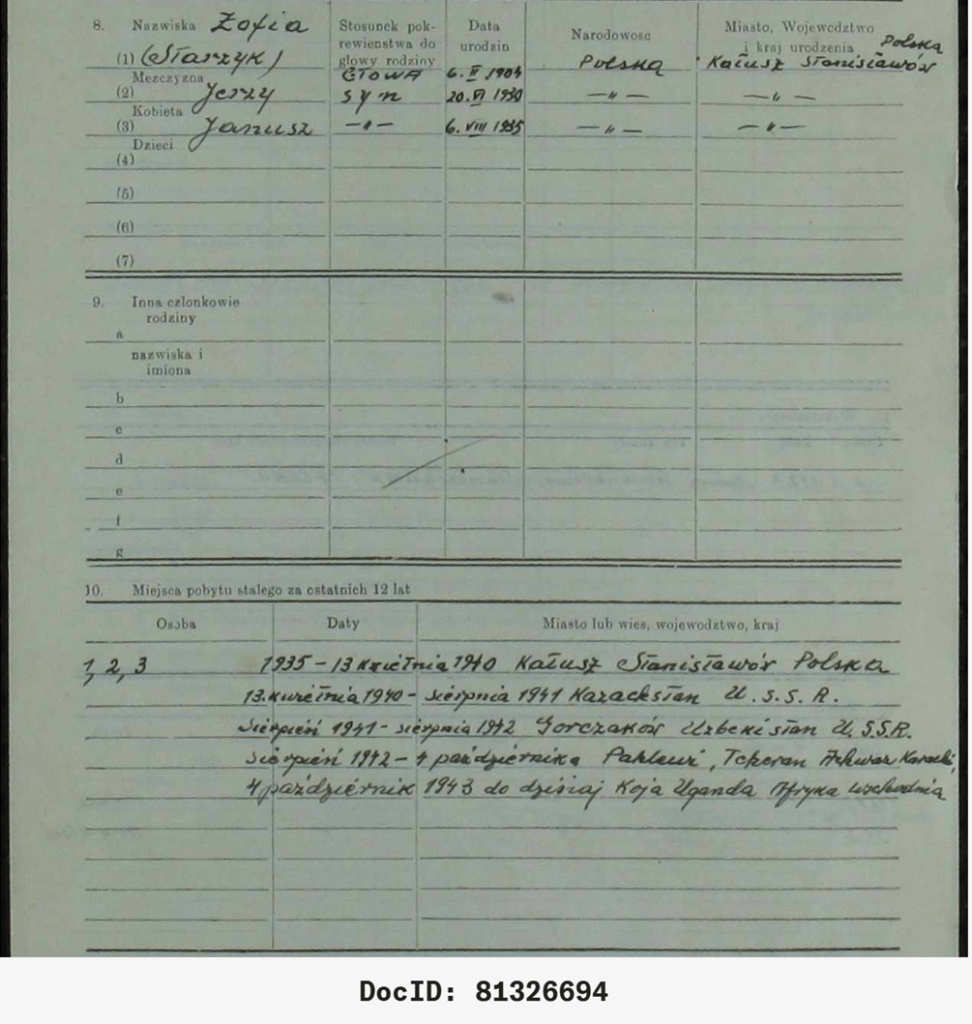 8. Nazwiska Zofia Stosunek pok- Data Narodowosc Miasto, Wojewodztwo
rewienstwa do urodzin i kraj urodzenia Polska
(1) (Starzyk) glowy rodziny Kałusz Stanisławów
Mezczyzna Głowa 6. II 1904 Polska
(2) Jerzy syn 20. VI 1930 —„— —„—
Kobieta
(3) Janusz —„— 6. VIII 1935 —„— —„—
Dzieci
(4)
(5)
(6)
(7)
9. Inna czlonkowie
rodziny
a
nazwiska i
imiona
b
c
d
e
f
g
10. Miejsca pobytu stalego za ostatnich 12 lat
Osoba Daty Miasto lub wies, wojewodztwo, kraj
1, 2, 3 1935 - 13 kwietnia 1940 Kałusz Stanisławów Polska
13. kwietnia 1940 - sierpnia 1941 Kazachstan U.S.S.R.
sierpień 1941 - sierpnia 1942 Gorczaków Uzbekistan U.S.S.R.
sierpień 1942 - 4 października Pahlewi, Teheran Achwaz Karachi,
4 październik 1943 do dzisiaj Koja Uganda Afryka wschodnia
DocID: 81326694